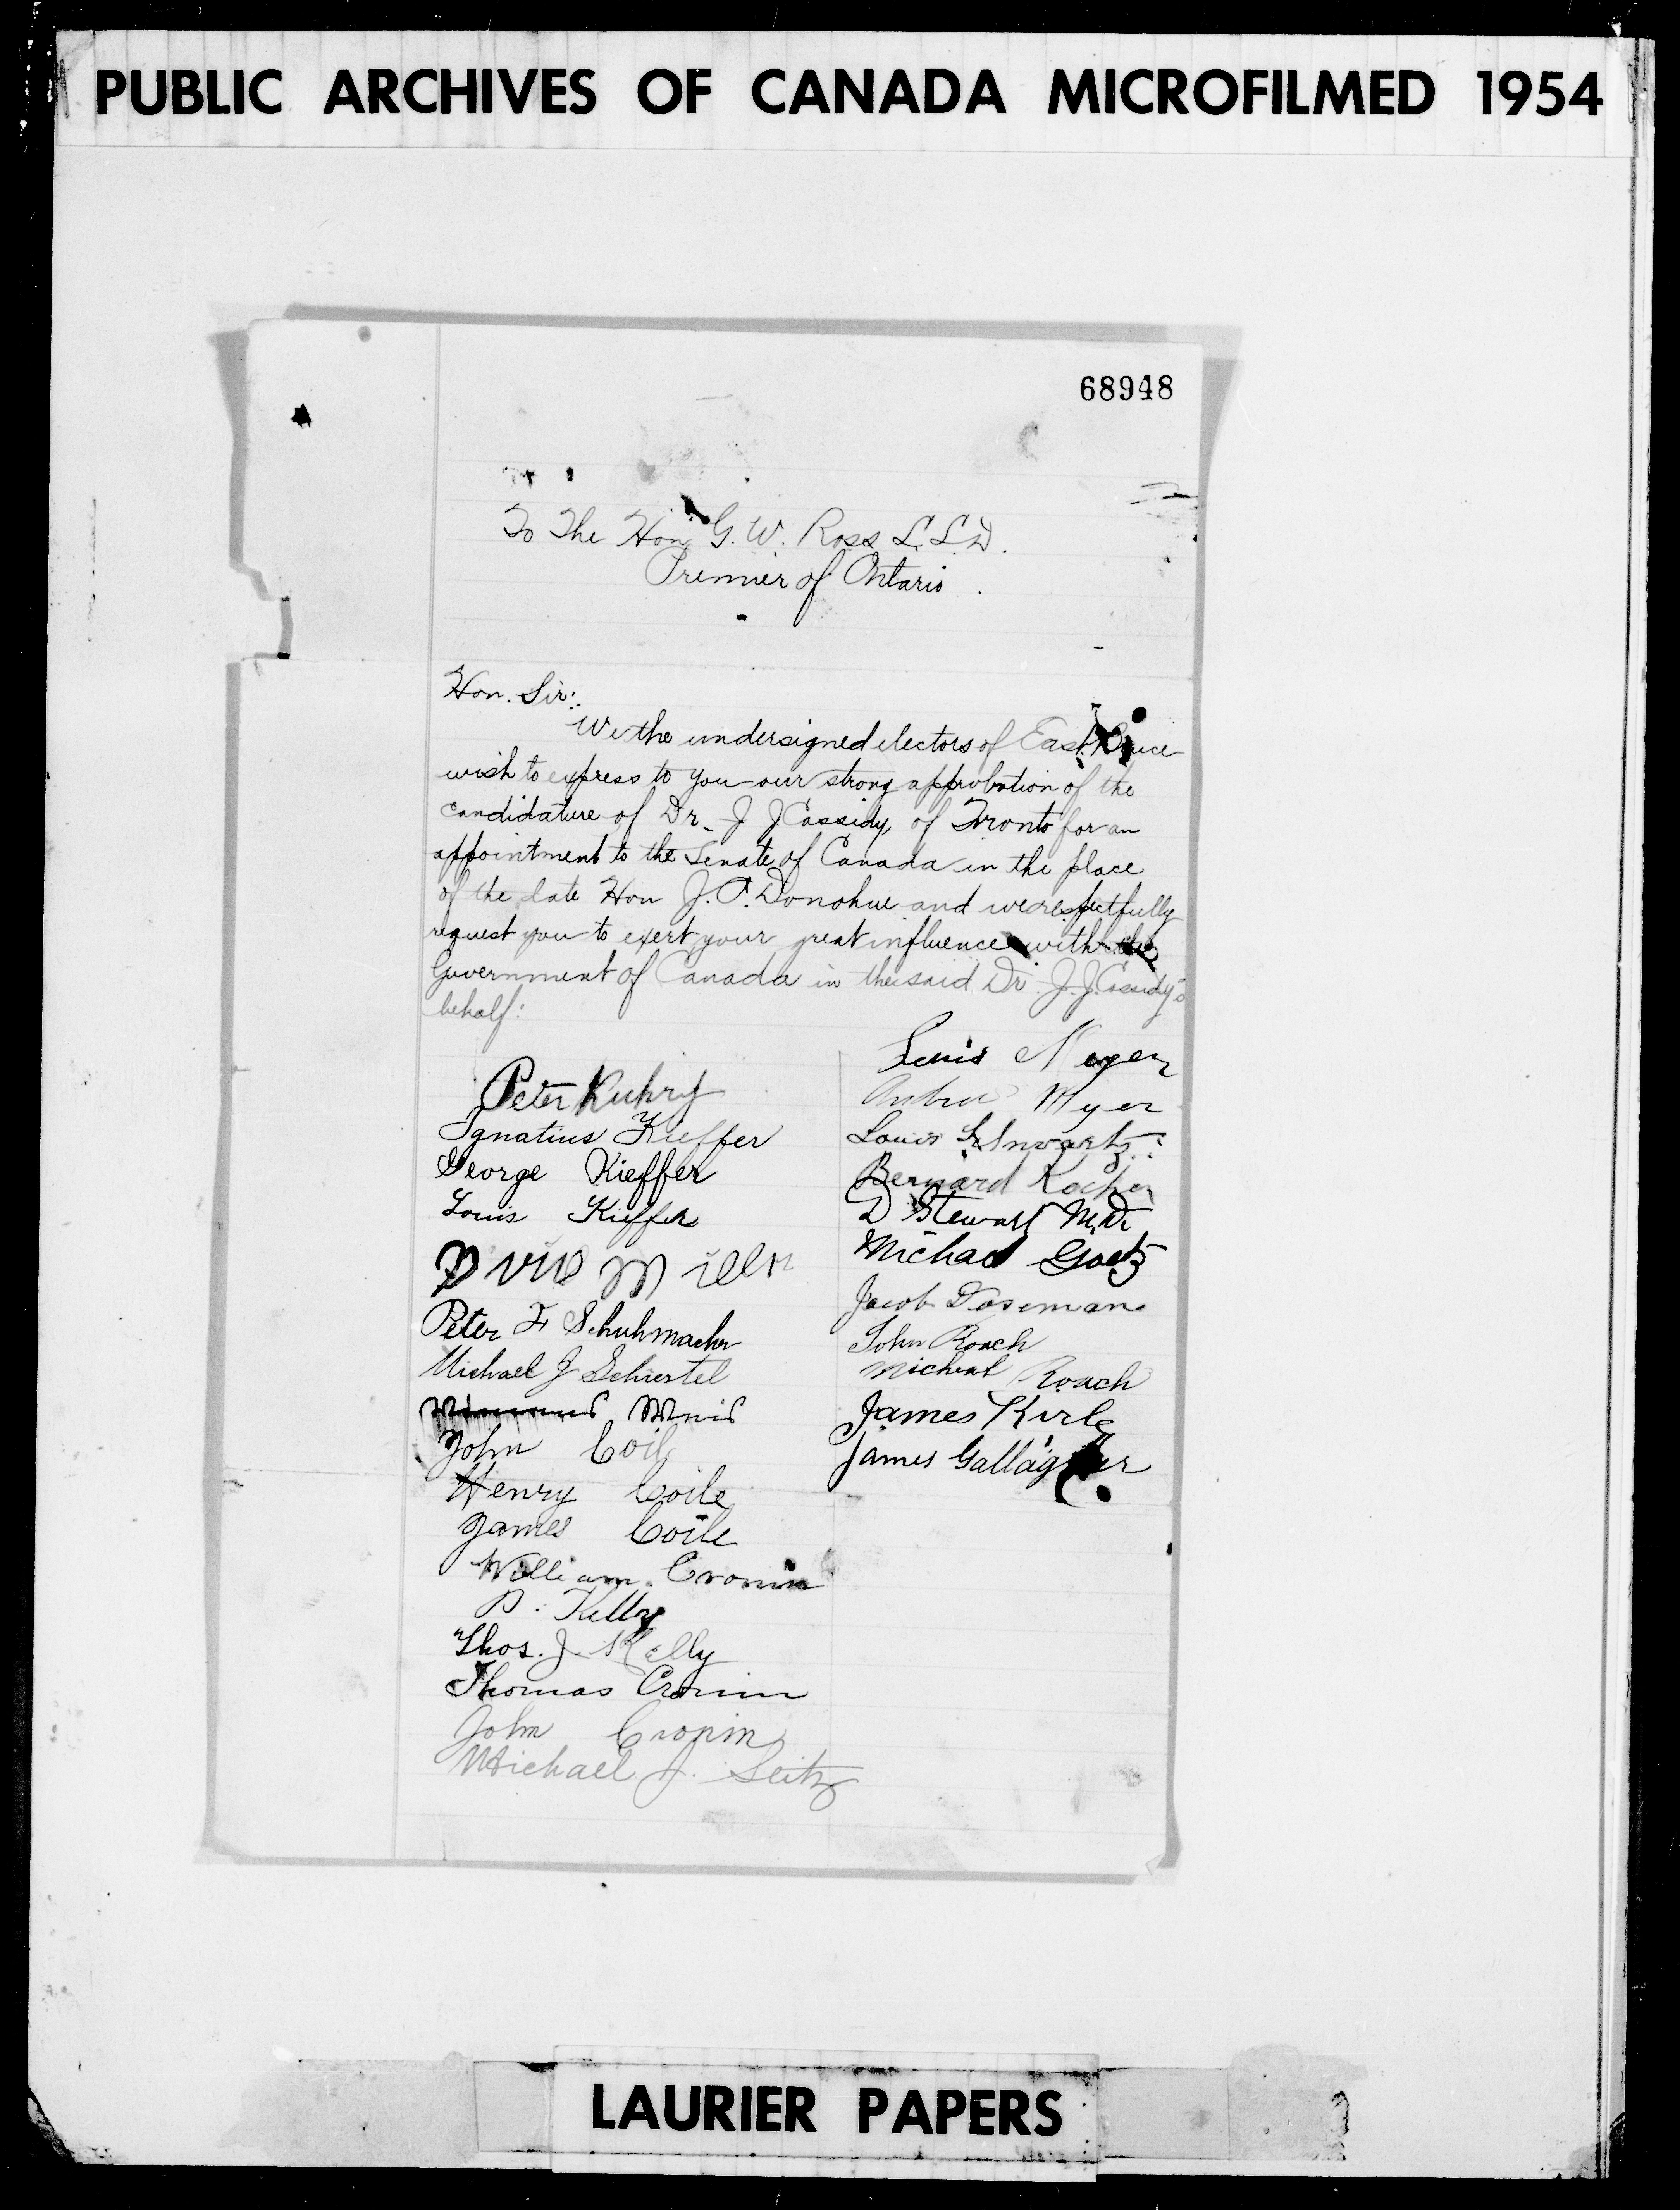 PUBLIC ARCHIVES OF CANADA MICROFILMED 1954
68948
To The Hon. G. W. Ross L.L.D.
Premier of Ontario.
Hon. Sir:
We the undersigned electors of East Bruce
wish to express to you our strong approbation of the
candidature of Dr. J J Cassidy, of Toronto for an
appointment to the Senate of Canada in the place
of the late Hon J. O. Donohue and we respectfully
request you to exert your great influence with the
Government of Canada in the said Dr. J. J. Cassidy's
behalf:
Peter Kuhry
Ignatius Kieffer
George Kieffer
Louis Kieffer
Miller
Peter F Schuhmacher
Michael J Schiestel
Weis
John Coil
Henry Coile
James Coile
William Cronin
P. Kelly
Thos. J. Kelly
Thomas Cronin
John Cronin
Michael J. Seitz
Louis Meyer
Myer
Louis Schwartz
Bernard Kocher
D Stewart M.D.
Michael Goetz
Jacob
John Roach
Micheal Roach
James Kirle
James Gallagher
LAURIER PAPERS